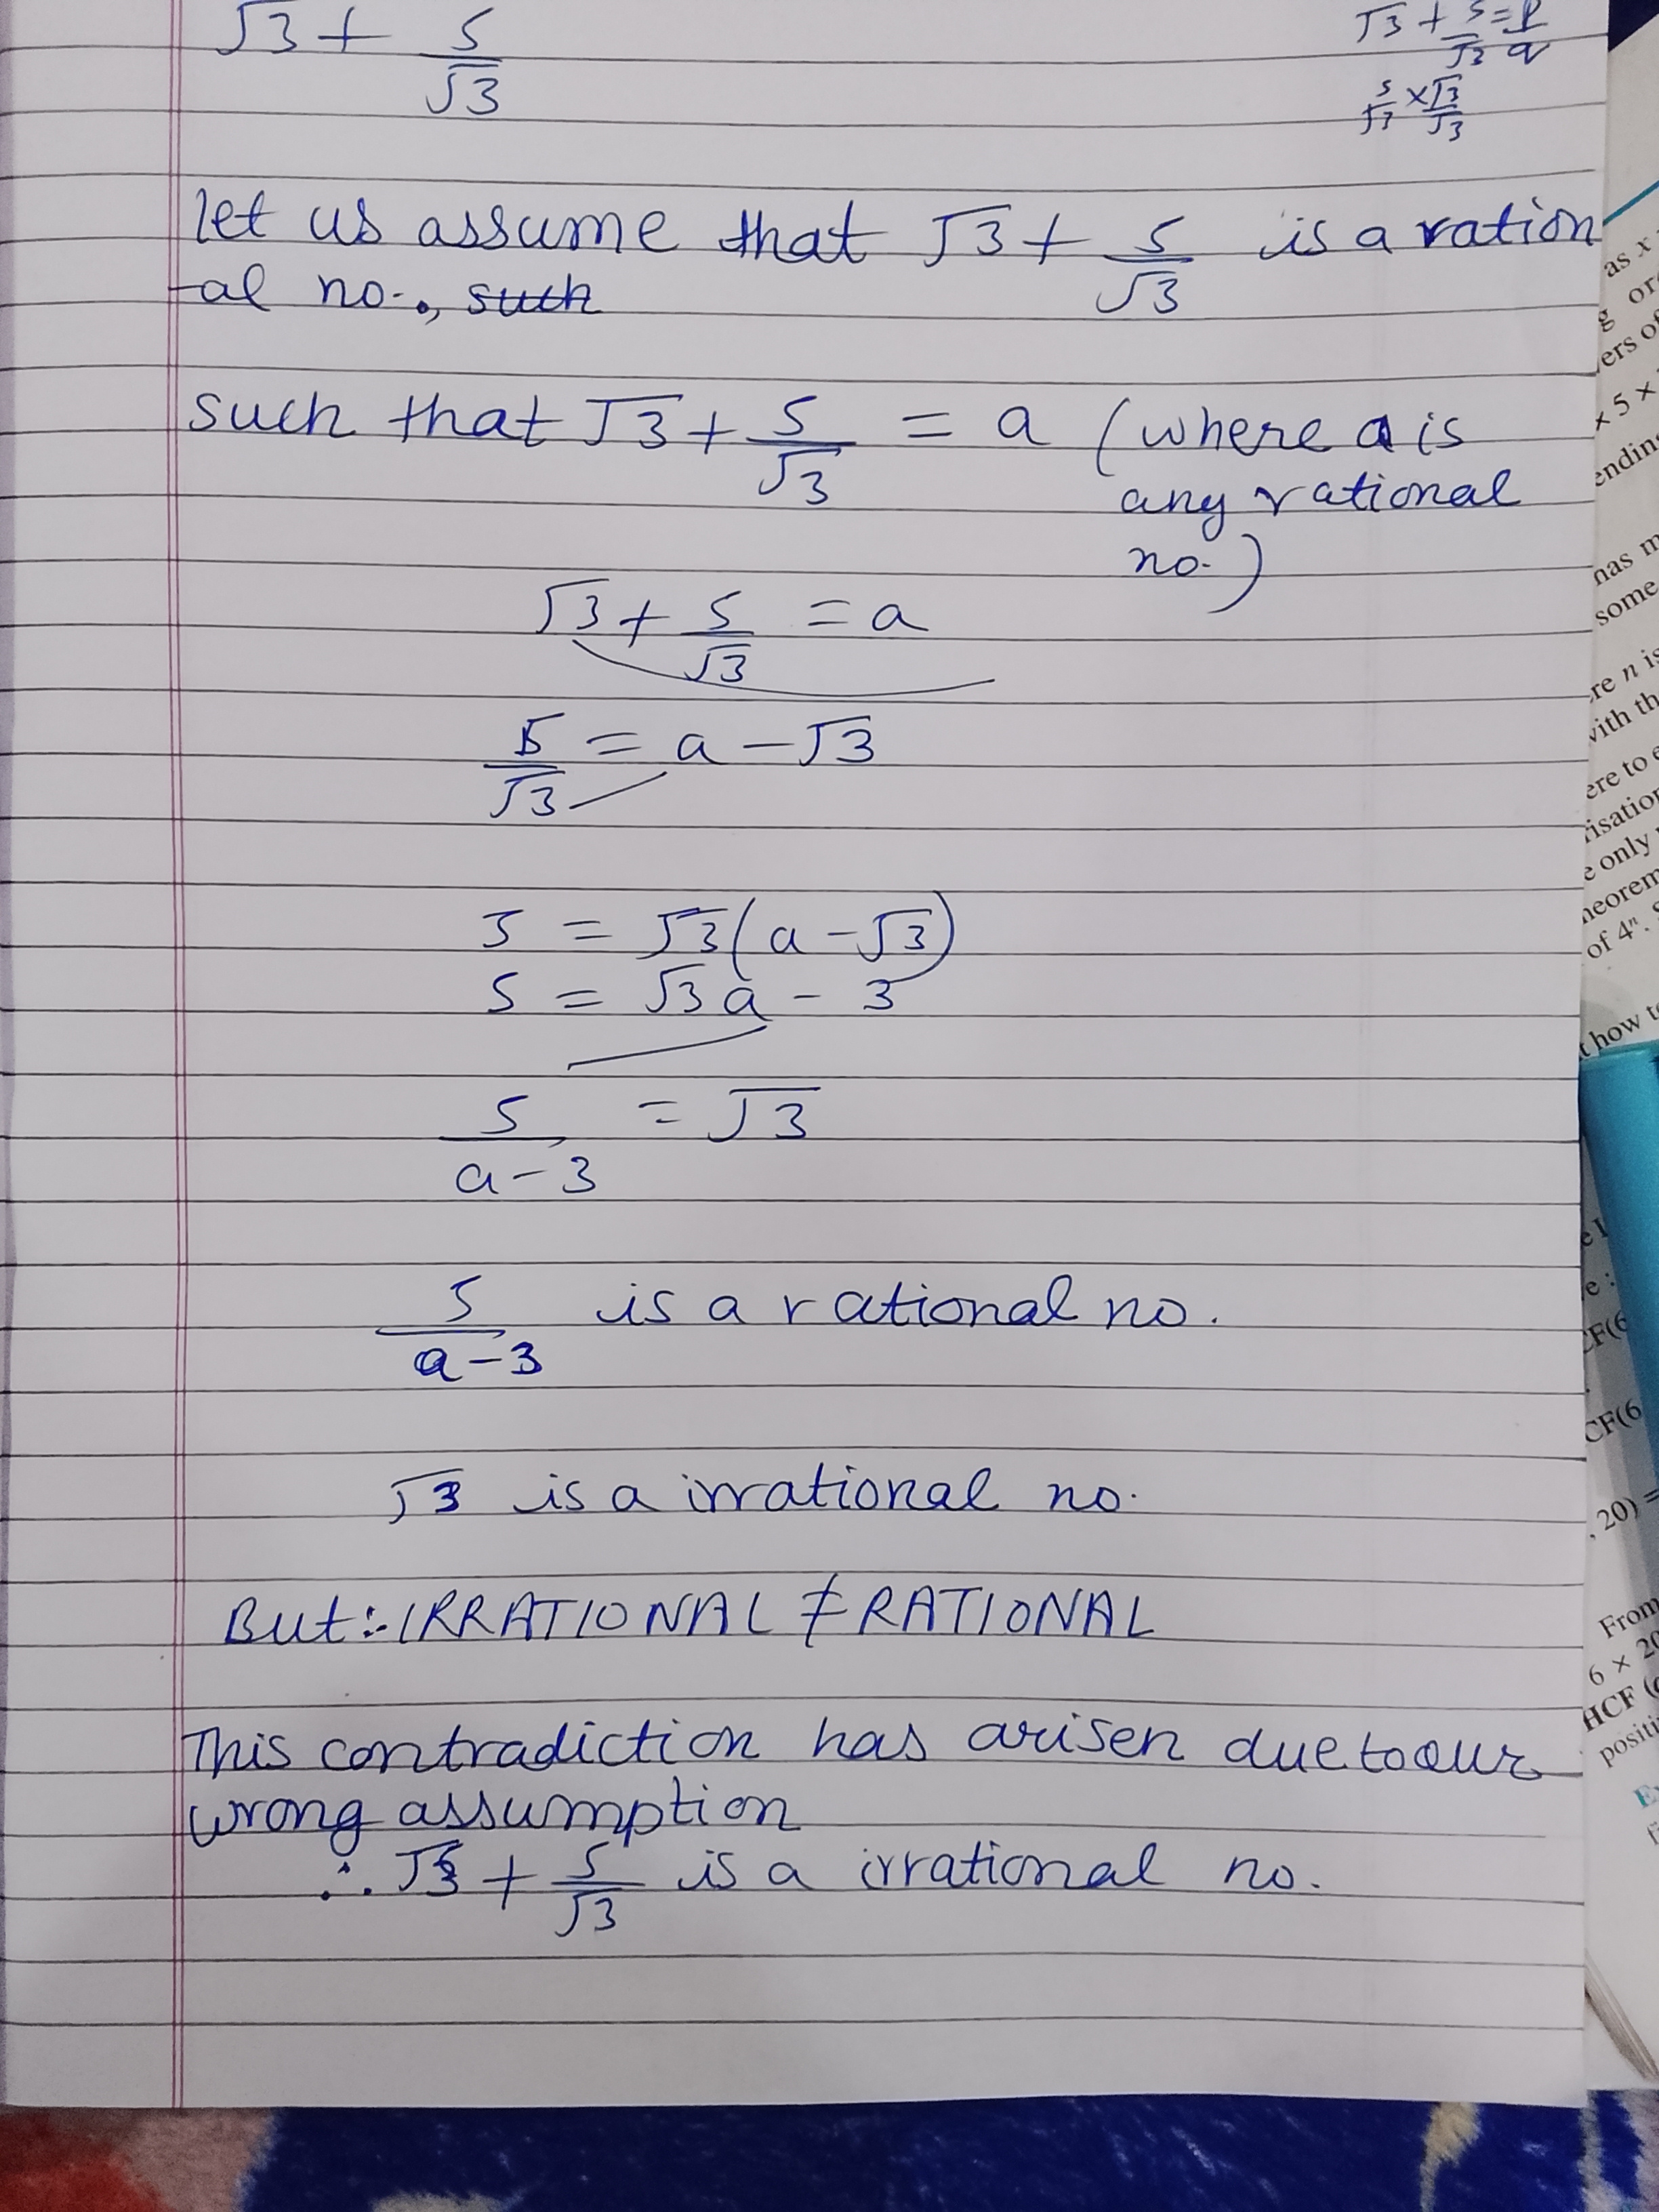 √3 + 5/√3
√3 + 5/√3 = p/q
5/√3 × √3/√3
let us assume that √3 + 5/√3 is a ration
-al no., such
such that √3 + 5/√3 = a (where a is
any rational
no.)
√3 + 5/√3 = a
5/√3 = a - √3
5 = √3(a - √3)
5 = √3a - 3
5/a-3 = √3
5/a-3 is a rational no.
√3 is a irrational no.
But:- IRRATIONAL ≠ RATIONAL
This contradiction has arisen due to our
wrong assumption
∴ √3 + 5/√3 is a irrational no.
as x
g or
ers of
× 5 ×
ending
has m
some
re n is
with th
ere to e
risation
e only
heorem
of 4ⁿ. S
t how to
e :
CF(6
, 20) =
From
6 × 20
HCF (
positi